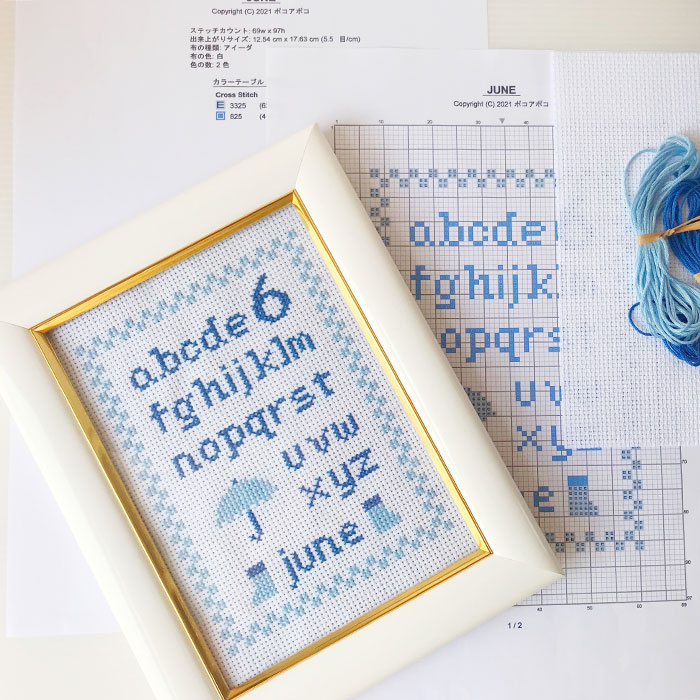 JUNE
Copyright (C) 2021 ポコアポコ
ステッチカウント: 69w x 97h
出来上がりサイズ: 12.54 cm x 17.63 cm (5.5 目/cm)
布の種類: アイーダ
布の色: 白
色の数: 2 色
カラーテーブル
Cross Stitch
3325 (6
825 (4
JUNE
Copyright (C) 2021 ポコアポコ
1 10 30 40
abcde
fghijkl
opqrs
uv
xy
e
40 50 60 69
70
80
90
97
1 / 2
abcde6
fghijklm
nopqrst
uvw
xyz
june